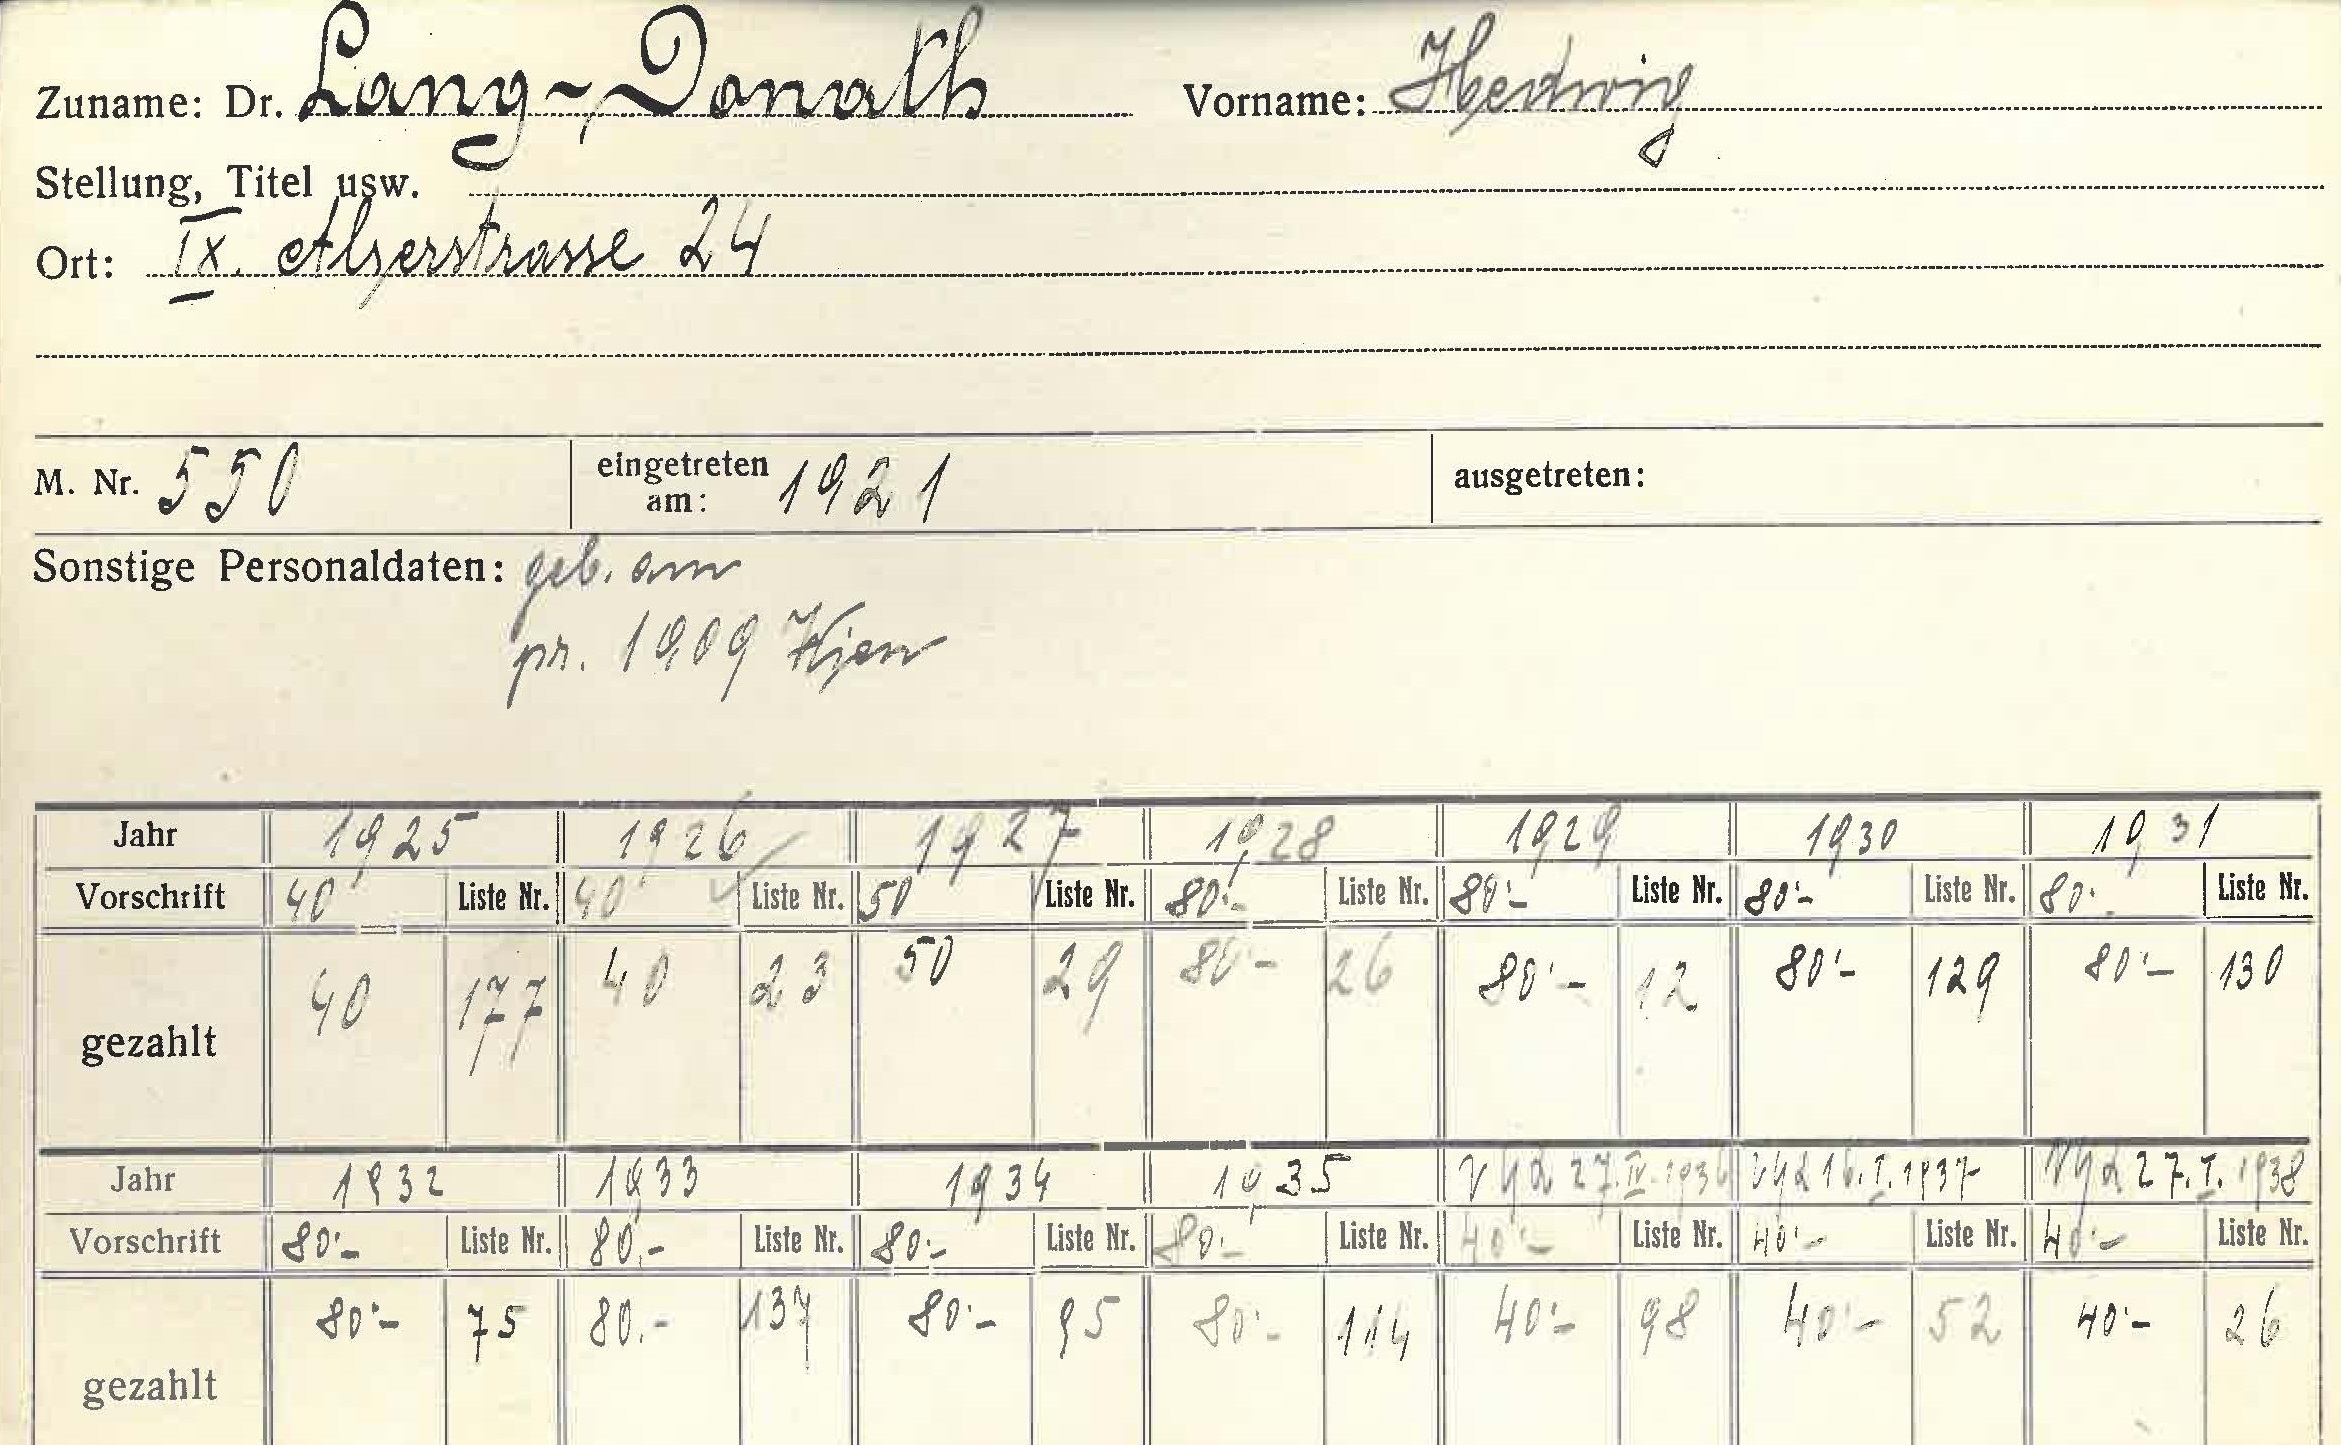 Zuname: Dr. Lang-Donath Vorname: Hedwig
Stellung, Titel usw.
Ort: IX. Alserstrasse 24
M. Nr. 550 eingetreten am: 1921 ausgetreten:
Sonstige Personaldaten: geb. am
pr. 1909 Wien
Jahr 1925 1926 1927 1928 1929 1930 1931
Vorschrift 40 Liste Nr. 40 Liste Nr. 50 Liste Nr. 80.- Liste Nr. 80.- Liste Nr. 80.- Liste Nr. 80.- Liste Nr.
gezahlt 40 177 40 23 50 29 80.- 26 80.- 12 80.- 129 80.- 130
Jahr 1932 1933 1934 1935 27.IV.1936 16.I.1937 27.I.1938
Vorschrift 80.- Liste Nr. 80.- Liste Nr. 80.- Liste Nr. 80.- Liste Nr. 40.- Liste Nr. 40.- Liste Nr. 40.- Liste Nr.
gezahlt 80.- 75 80.- 137 80.- 95 80.- 114 40.- 98 40.- 52 40.- 26